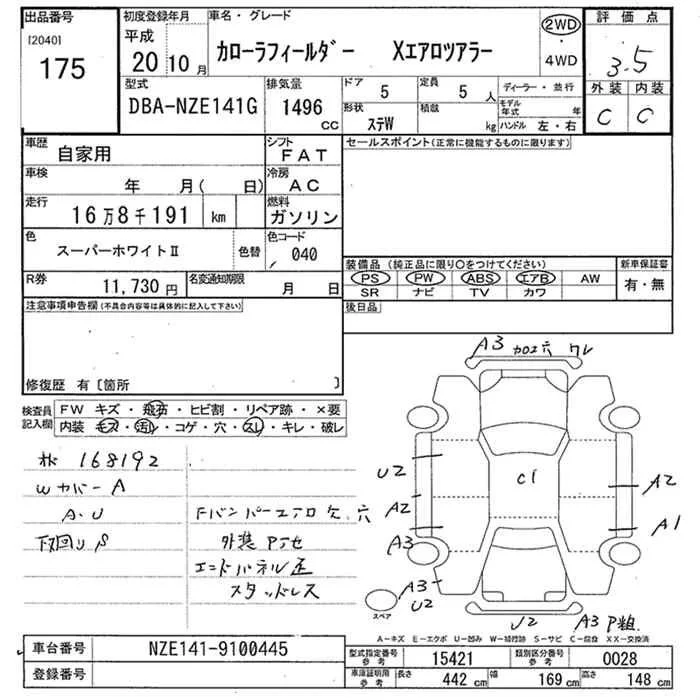 出品番号 初度登録年月 車名・グレード 2WD 評価点
[2040] 平成
175 20 10月 カローラフィールダー Xエアロツアラー ・ 4WD 3.5
型式 排気量 ドア 定員 ディーラー・並行 外装 内装
DBA-NZE141G 1496 cc 5 5人 モデル年式 年 C C
形状 積載
ステW kg ハンドル 左・右
車歴 自家用 シフト FAT セールスポイント(正常に機能するものに限ります)
車検 年 月( 日) 冷房 AC
走行 16万8千191 km 燃料 ガソリン
色 スーパーホワイトⅡ 色替 色コード 040
装備品 (純正品に限り○をつけてください) 新車保証書
R券 11,730円 名変通知期限 月 日 PS PW ABS エアB AW 有・無
SR ナビ TV カワ
注意事項申告欄(不具合内容等は具体的に記入して下さい) 後日品
修復歴 有〔箇所 〕
検査員記入欄 FW キズ・飛石・ヒビ割・リペア跡・×要
内装 キズ・汚レ・コゲ・穴・スレ・キレ・破レ
A3 カロエ穴 ワレ
168192
Wカバー A
A・U Fバンパーエアロ欠 穴
下回りS 外装Pテセ
エンドパネル歪
スタッドレス
U2 C1 A2
A2 A1
A3
A3-
U2
スペア
U2 A3 P粗
A-キズ E-エクボ U-凹み W-補修跡 S-サビ C-腐食 XX-交換済
車台番号 NZE141-9100445 型式指定番号 参考 15421 類別区分番号 参考 0028
登録番号 車庫証明用 参考 長さ 442 cm 幅 169 cm 高さ 148 cm